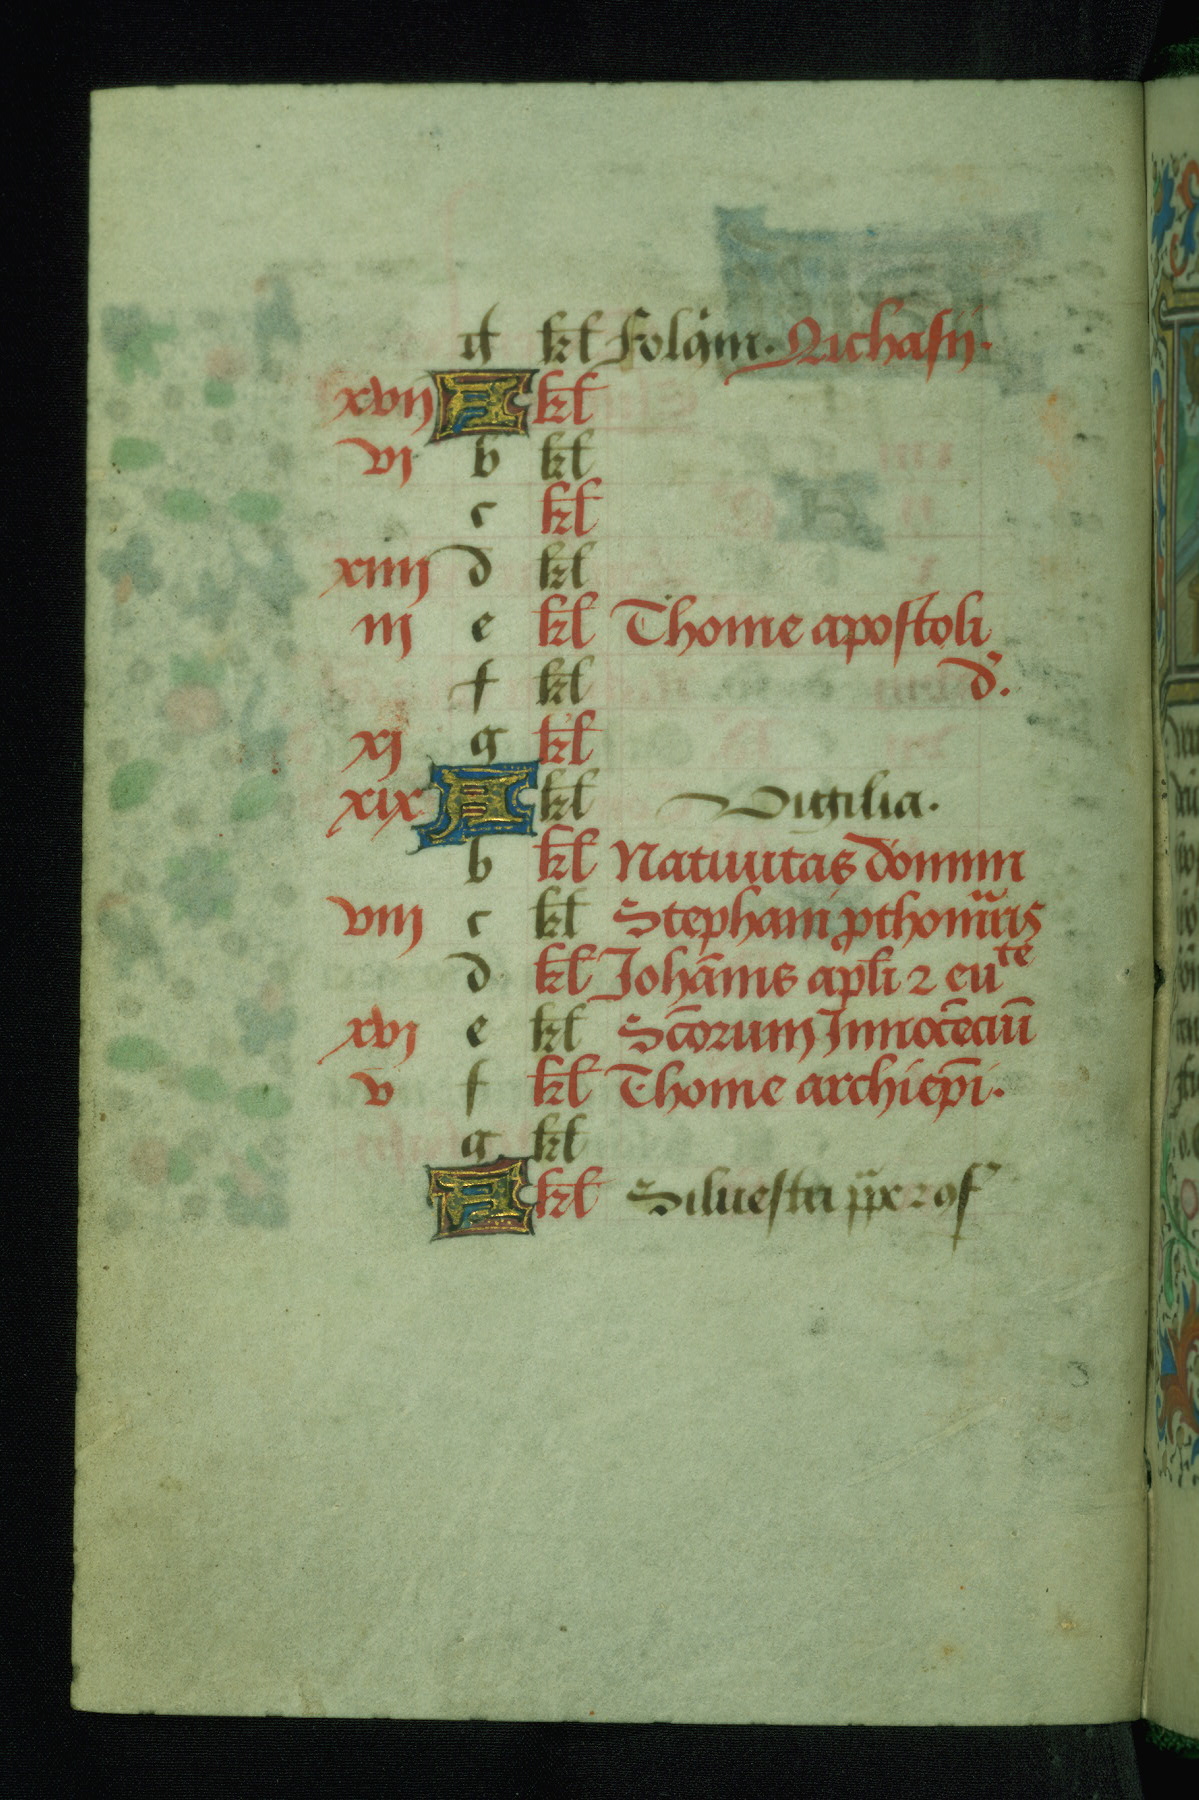 g kl Folani. Nichasij.
xvij A kl
vj b kl
c kl
xiiij d kl
iij e kl Thome apostoli
f kl d.
xj g kl
xix A kl Vigilia.
b kl Natiuitas domini
viij c kl Stephani pthomris
d kl Iohanis apli 2 eute
xvj e kl Scorum Innoceciu
v f kl Thome archiepi.
g kl
A kl Siluestri ppe 2 9f